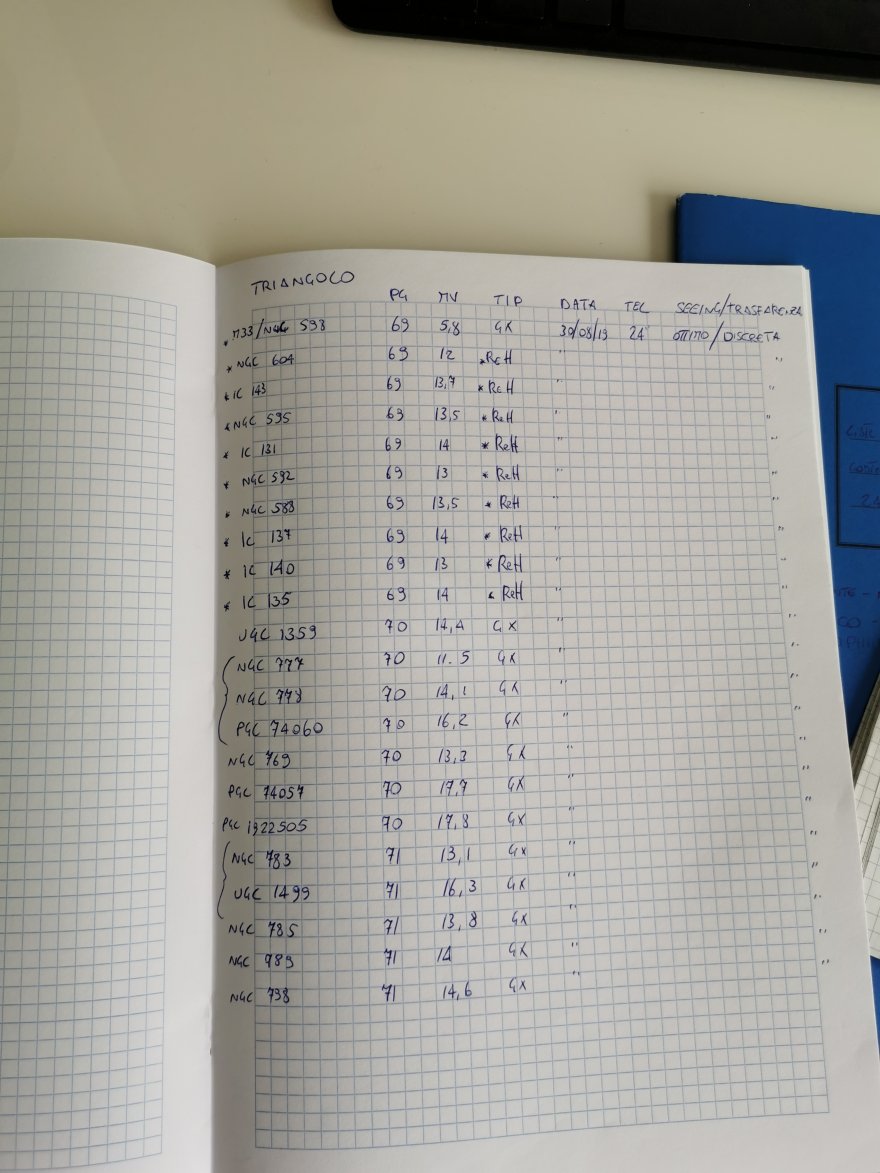 TRIANGOLO
PG MV TIP DATA TEL SEEING/TRASPARENZA
* M33/NGC 598 69 5,8 GX 30/08/19 24" OTTIMO/DISCRETA
* NGC 604 69 12 *ReH " "
* IC 143 69 13,7 *ReH " "
* NGC 595 69 13,5 *ReH " "
* IC 131 69 14 *ReH " "
* NGC 592 69 13 *ReH " "
* NGC 588 69 13,5 *ReH " "
* IC 137 69 14 *ReH " "
* IC 140 69 13 *ReH " "
* IC 135 69 14 *ReH " "
UGC 1359 70 14,4 GX " "
NGC 777 70 11.5 GX " "
NGC 778 70 14,1 GX " "
PGC 74060 70 16,2 GX " "
NGC 769 70 13,3 GX " "
PGC 74057 70 17,7 GX " "
PGC 1922505 70 17,8 GX " "
NGC 783 71 13,1 GX " "
UGC 1499 71 16,3 GX " "
NGC 785 71 13,8 GX " "
NGC 789 71 14 GX " "
NGC 798 71 14,6 GX "